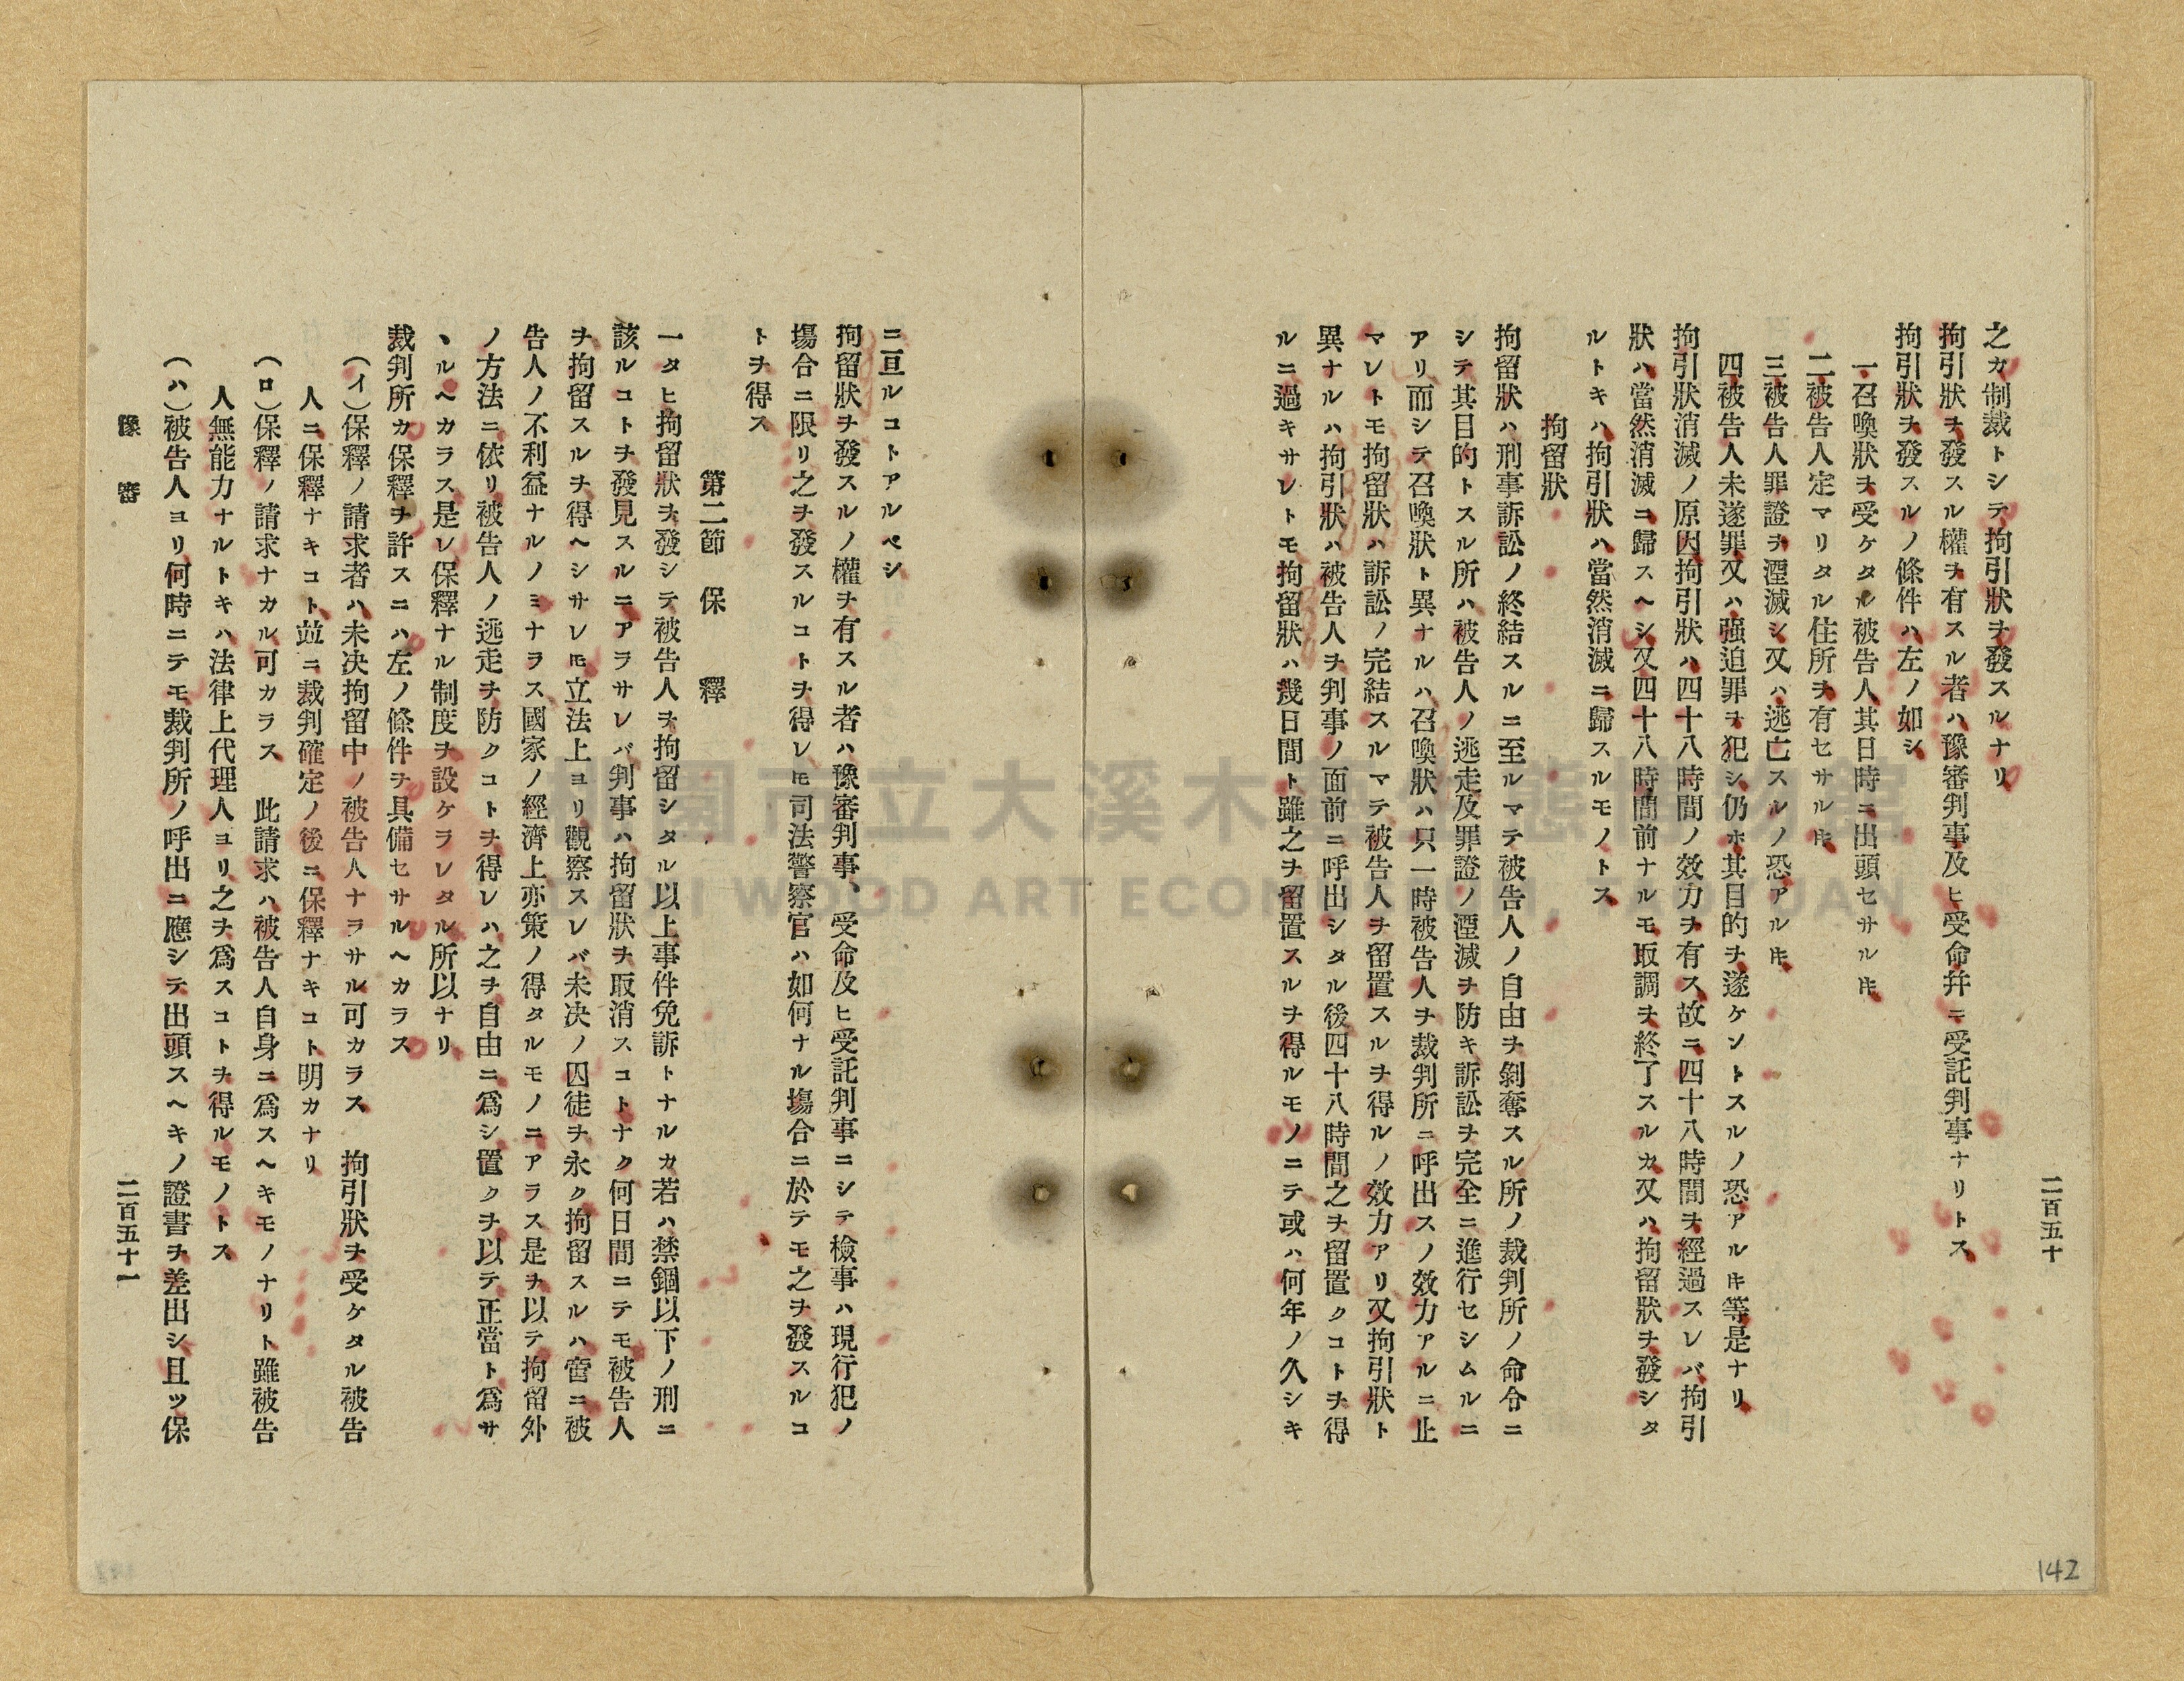 二百五十
之カ制裁トシテ拘引狀ヲ發スルナリ
拘引狀ヲ發スル權ヲ有スル者ハ豫審判事及ヒ受命幷ニ受託判事ナリトス
拘引狀ヲ發スルノ條件ハ左ノ如シ
一召喚狀ヲ受ケタル被告人其日時ニ出頭セサルㇳキ
二被告人定マリタル住所ヲ有セサルㇳキ
三被告人罪證ヲ湮滅シ又ハ逃亡スルノ恐アルㇳキ
四被告人未遂罪又ハ强迫罪ヲ犯シ仍ホ其目的ヲ遂ケントスルノ恐アルㇳキ等是ナリ
拘引狀消滅ノ原因拘引狀ハ四十八時間ノ效力ヲ有ス故ニ四十八時間ヲ經過スレバ拘引
狀ハ當然消滅ニ歸スヘシ又四十八時間前ナルモ取調ヲ終了スルカ又ハ拘留狀ヲ發シタ
ルトキハ拘引狀ハ當然消滅ニ歸スルモノトス
拘留狀
拘留狀ハ刑事訴訟ノ終結スルニ至ルマテ被告人ノ自由ヲ剝奪スル所ノ裁判所ノ命令ニ
シテ其目的トスル所ハ被告人ノ逃走及罪證ノ湮滅ヲ防キ訴訟ヲ完全ニ進行セシムルニ
アリ而シテ召喚狀ト異ナルハ召喚狀ハ只一時被告人ヲ裁判所ニ呼出スノ效力アルニ止
マレトモ拘留狀ハ訴訟ノ完結スルマテ被告人ヲ留置スルヲ得ルノ效力アリ又拘引狀ト
異ナルハ拘引狀ハ被告人ヲ判事ノ面前ニ呼出シタル後四十八時間之ヲ留置クコトヲ得
ルニ過キサレトモ拘留狀ハ幾日間ト雖之ヲ留置スルヲ得ルモノニテ或ハ何年ノ久シキ
142
ニ亘ルコトアルベシ
拘留狀ヲ發スルノ權ヲ有スル者ハ豫審判事、受命及ヒ受託判事ニシテ檢事ハ現行犯ノ
塲合ニ限リ之ヲ發スルコトヲ得レㇳモ司法警察官ハ如何ナル塲合ニ於テモ之ヲ發スルコ
トヲ得ス
第二節 保釋
一タヒ拘留狀ヲ發シテ被告人ヲ拘留シタル以上事件免訴トナルカ若ハ禁錮以下ノ刑ニ
該ルコトヲ發見スルニアラサレバ判事ハ拘留狀ヲ取消スコトナク何日間ニテモ被告人
ヲ拘留スルヲ得ヘシサレㇳモ立法上ヨリ觀察スレバ未決ノ囚徒ヲ永ク拘留スルハ啻ニ被
告人ノ不利益ナルノミナラス國家ノ經濟上亦策ノ得タルモノニアラス是ヲ以テ拘留外
ノ方法ニ依リ被告人ノ逃走ヲ防クコトヲ得レハ之ヲ自由ニ爲シ置クヲ以テ正當ト爲サ
ヽルヘカラス是レ保釋ナル制度ヲ設ケラレタル所以ナリ
裁判所カ保釋ヲ許スニハ左ノ條件ヲ具備セサルヘカラス
(イ)保釋ノ請求者ハ未决拘留中ノ被告人ナラサル可カラス 拘引狀ヲ受ケタル被告
人ニ保釋ナキコト並ニ裁判確定ノ後ニ保釋ナキコト明カナリ
(ロ)保釋ノ請求ナカル可カラス 此請求ハ被告人自身ニ爲スヘキモノナリト雖被告
人無能力ナルトキハ法律上代理人ヨリ之ヲ爲スコトヲ得ルモノトス
(ハ)被告人ヨリ何時ニテモ裁判所ノ呼出ニ應シテ出頭スヘキノ證書ヲ差出シ且ツ保
豫審
二百五十一
桃園市立大溪木藝生態博物館
DAXI WOOD ART ECOMUSEUM, TAOYUAN